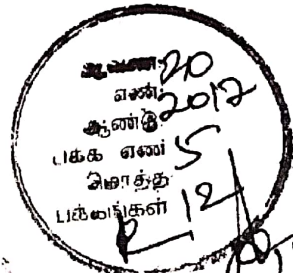 ஆவண 20
எண்
ஆண்டு 2012
பக்க எண் 5
மொத்த
பக்கங்கள் 12